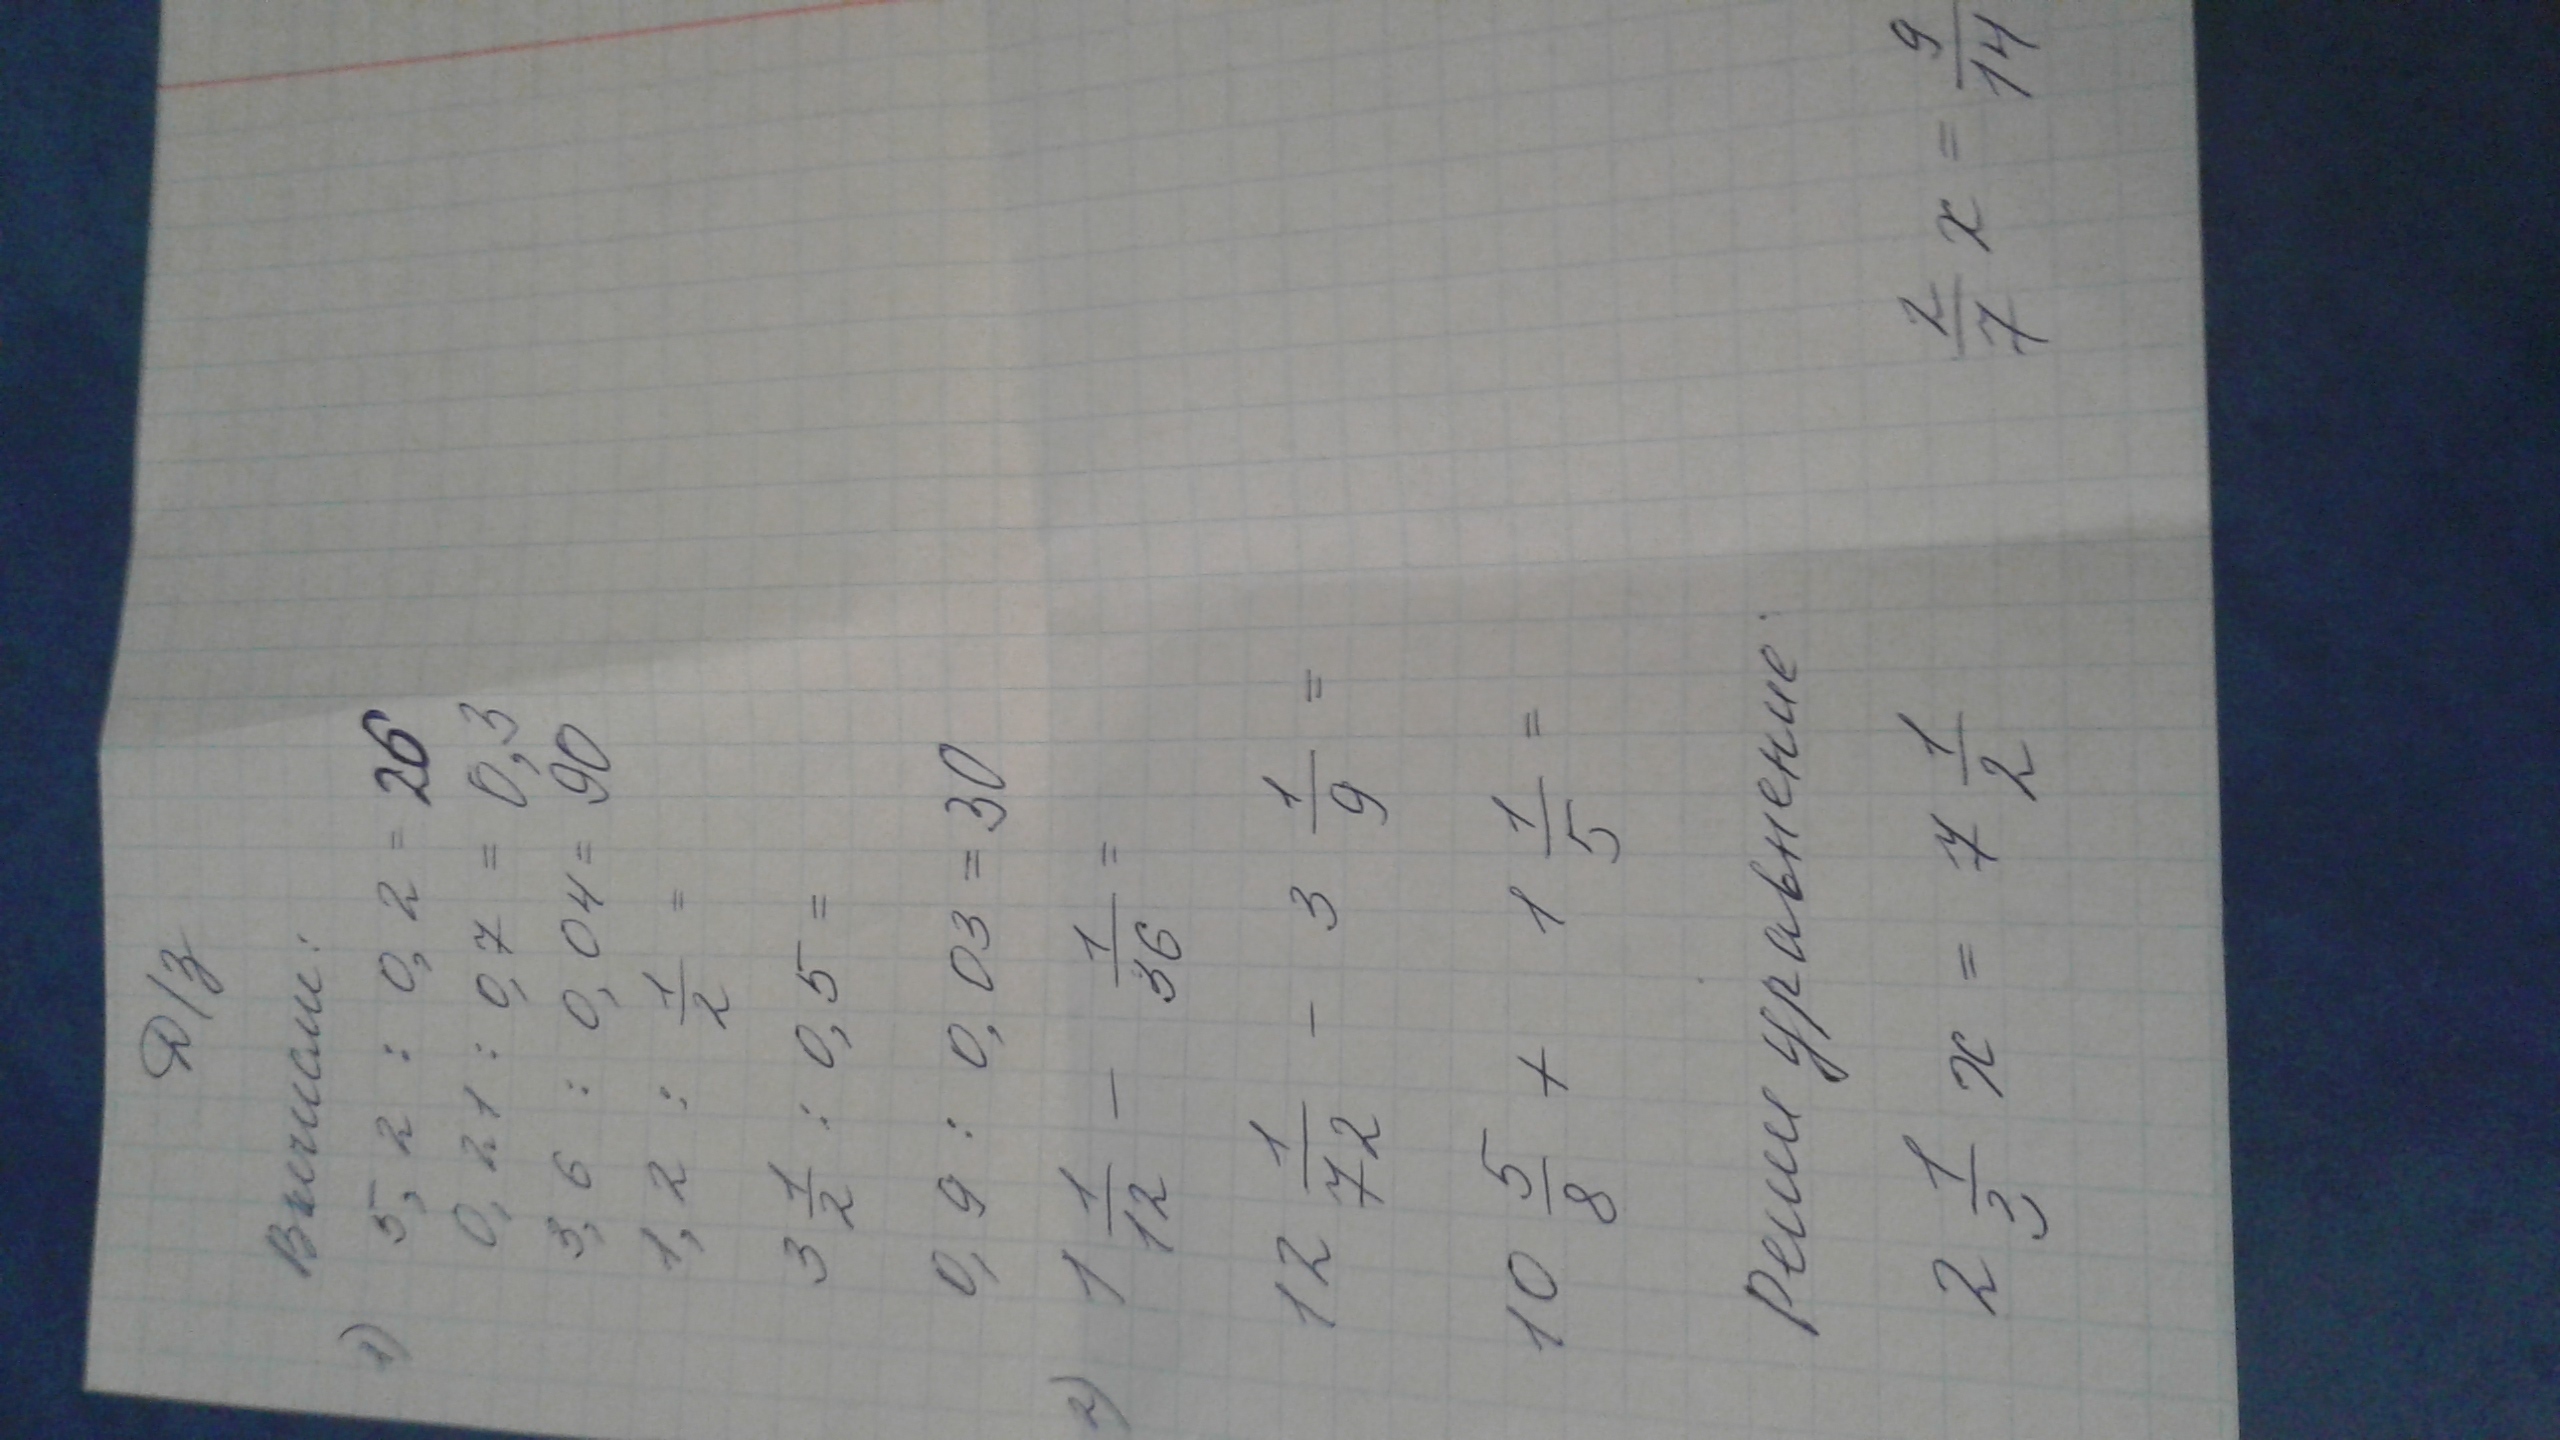 Д/з
Вычисли:
1) 5,2 : 0,2 = 26
0,21 : 0,7 = 0,3
3,6 : 0,04 = 90
1,2 : 1/2 =
3 1/2 : 0,5 =
0,9 : 0,03 = 30
2) 1 1/12 - 1/36 =
12 1/72 - 3 1/9 =
10 5/8 + 1 1/5 =
Реши уравнение:
2 1/3 x = 7 1/2 2/7 x = 9/14